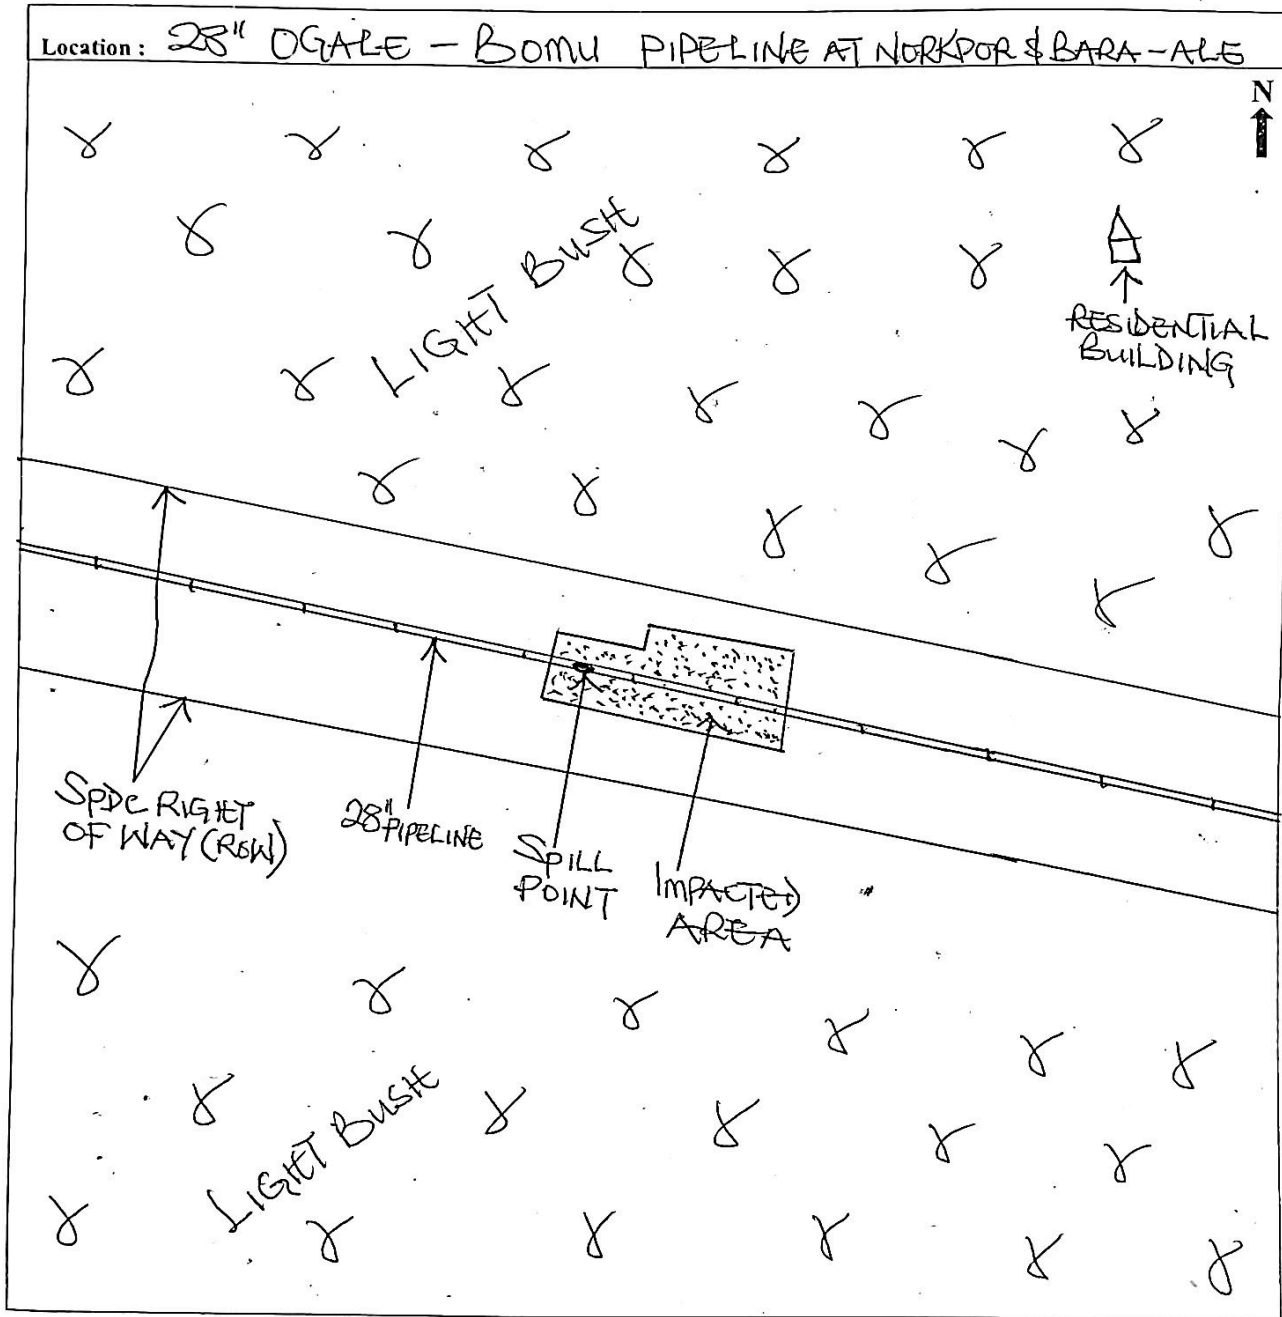 Location : 28" OGALE - BOMU PIPELINE AT NORKPOR & BARA-ALE
N
LIGHT BUSH
RESIDENTIAL
BUILDING
SPDC RIGHT
OF WAY (ROW)
28" PIPELINE
SPILL
POINT
IMPACTED
AREA
LIGHT BUSH